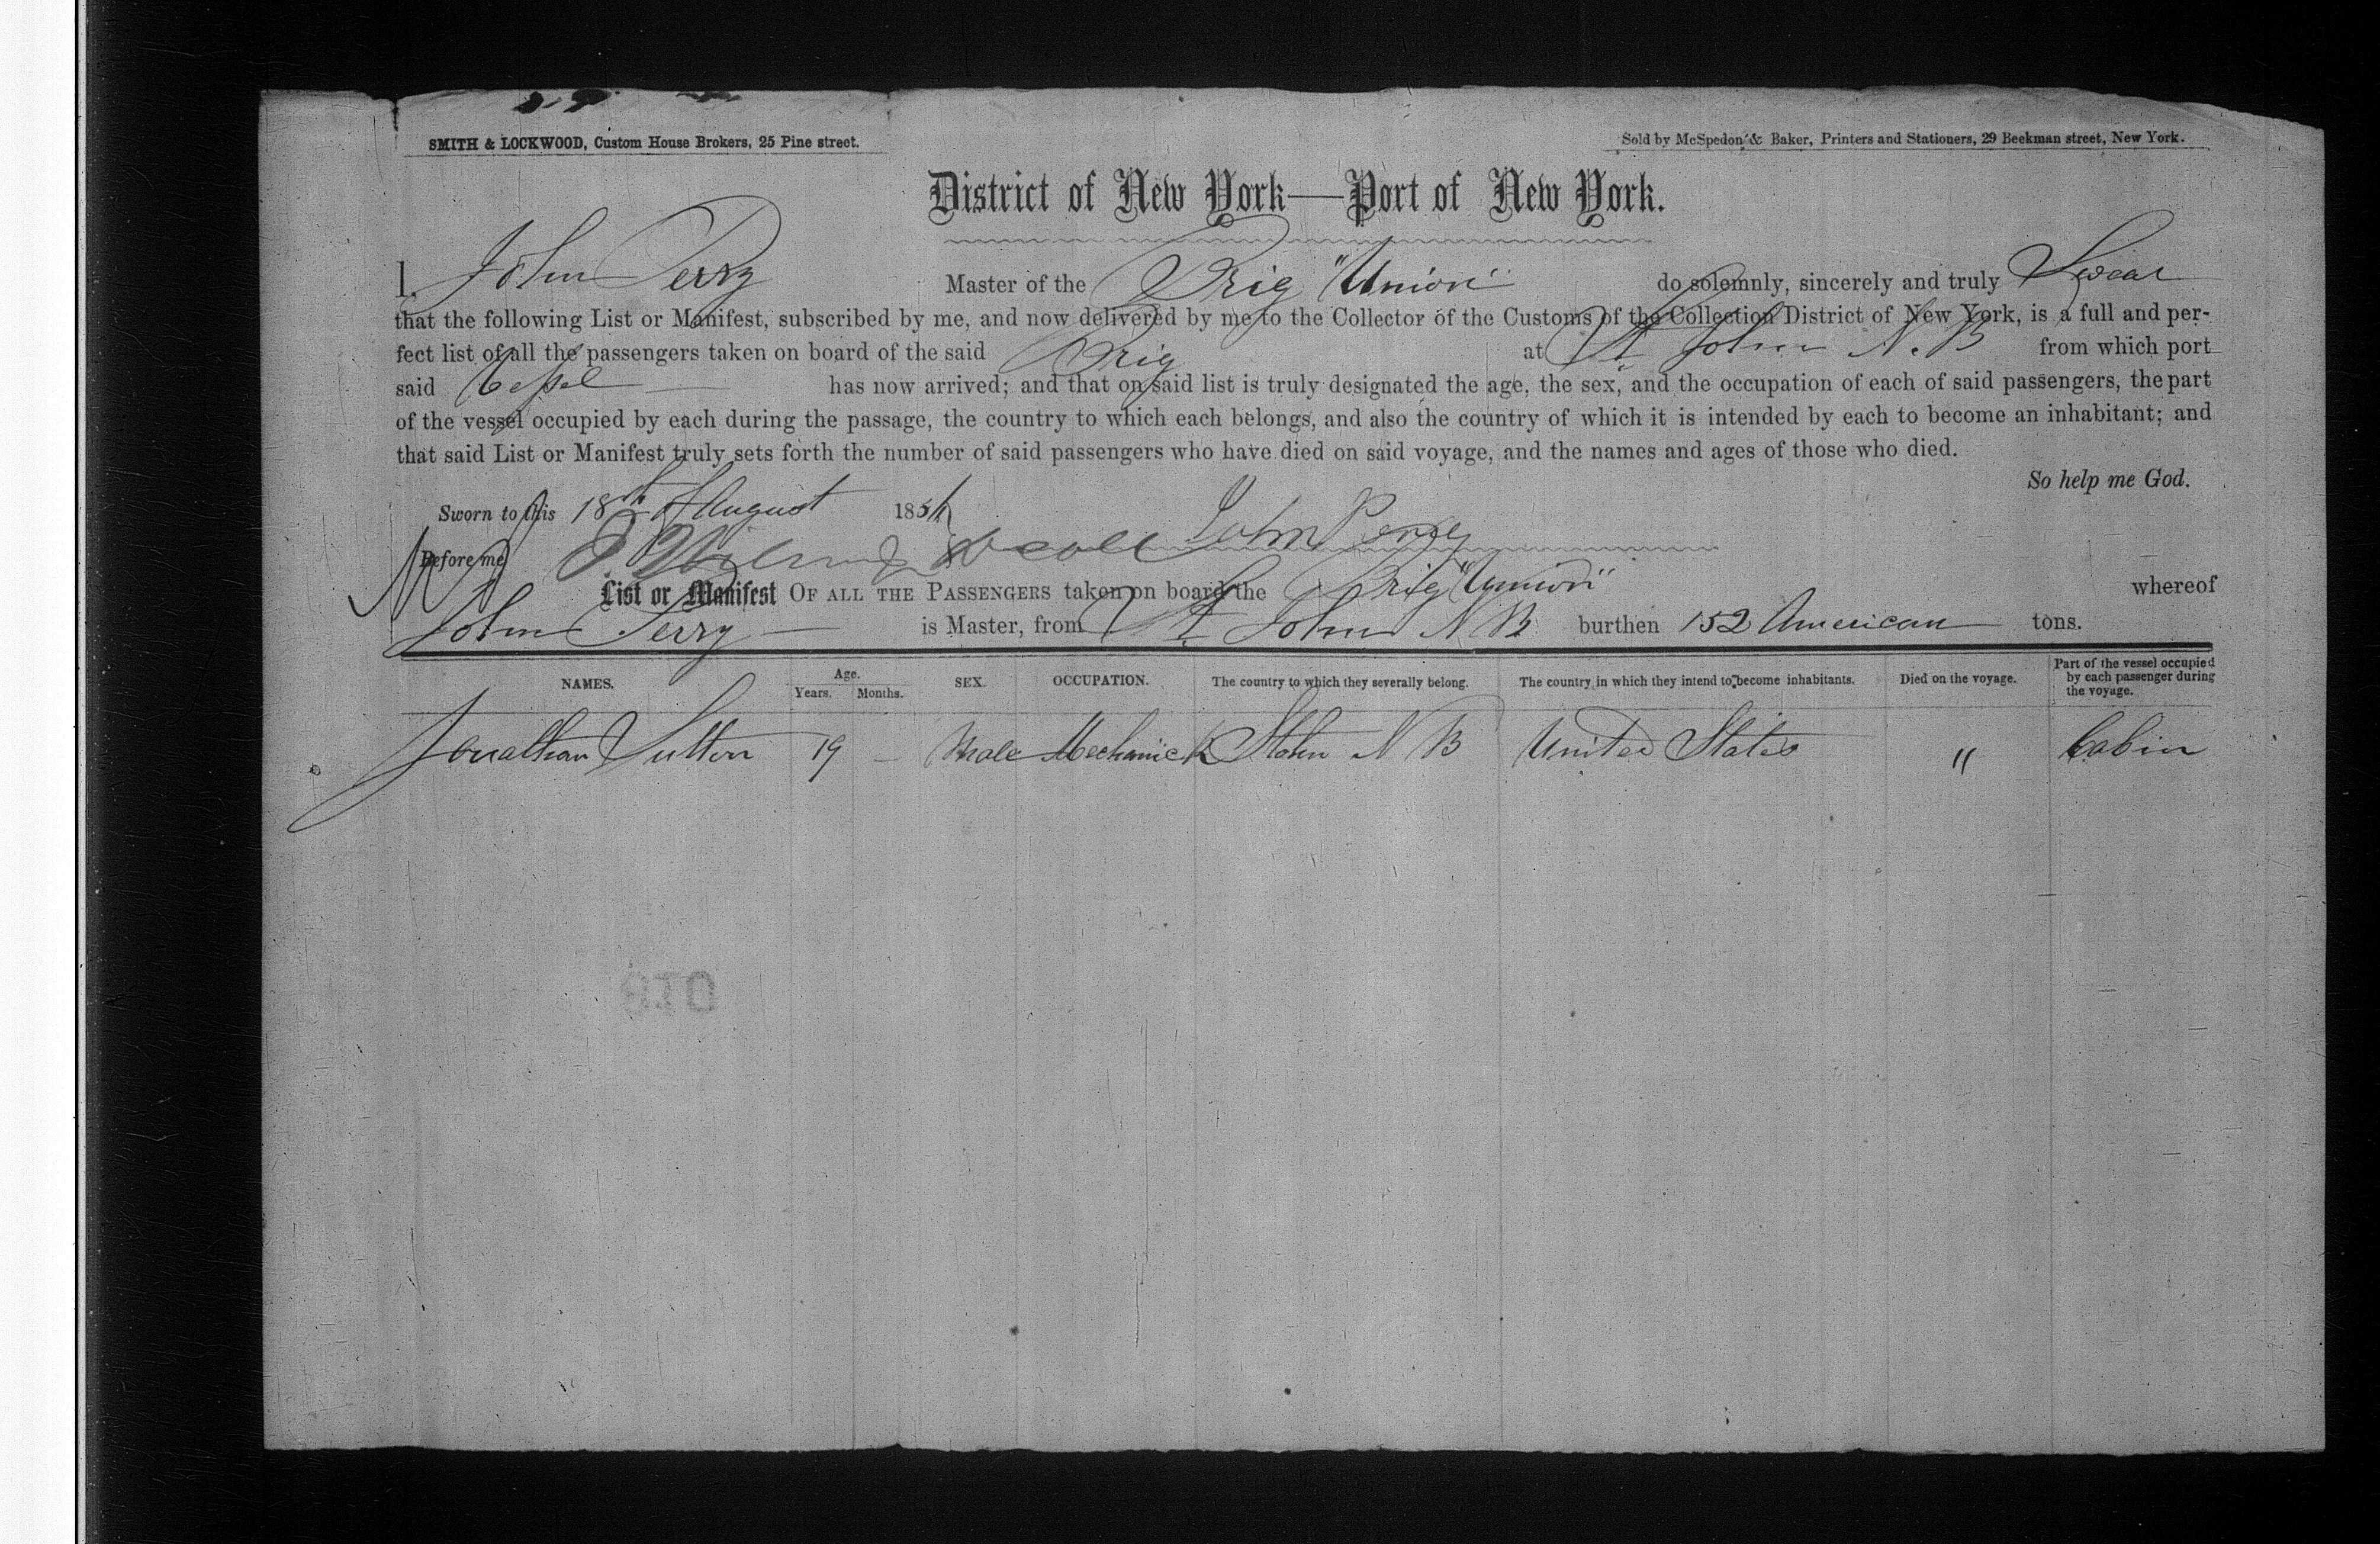 SMITH & LOCKWOOD, Custom House Brokers, 25 Pine street.
Sold by McSpedon & Baker, Printers and Stationers, 29 Beekman street, New York.
District of New York—Port of New York.
I, John Perry Master of the Brig "Union" do solemnly, sincerely and truly Swear
that the following List or Manifest, subscribed by me, and now delivered by me to the Collector of the Customs of the Collection District of New York, is a full and per-
fect list of all the passengers taken on board of the said Brig at St John N.B from which port
said Vessel has now arrived; and that on said list is truly designated the age, the sex, and the occupation of each of said passengers, the part
of the vessel occupied by each during the passage, the country to which each belongs, and also the country of which it is intended by each to become an inhabitant; and
that said List or Manifest truly sets forth the number of said passengers who have died on said voyage, and the names and ages of those who died.
So help me God.
Sworn to this 18th of August 185
John Perry
Before me
List or Manifest OF ALL THE PASSENGERS taken on board the Brig "Union" whereof
John Perry — is Master, from St John N B burthen 152 American tons.
NAMES. Age. Years. Months. SEX. OCCUPATION. The country to which they severally belong. The country in which they intend to become inhabitants. Died on the voyage. Part of the vessel occupied by each passenger during the voyage.
Jonathan Sutton 19 — Male Mechanick St John N B United States " Cabin